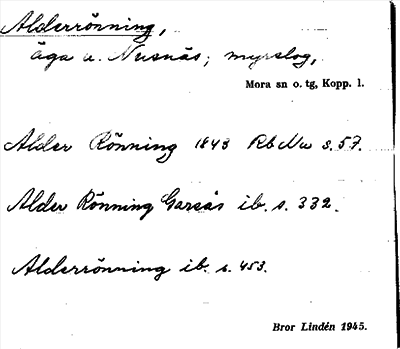 Alderrönning,
äga u. Nusnäs; myrslog,
Mora sn o. tg, Kopp. l.
Alder Rönning 1843 Rb Nu s. 57.
Alder Rönning Garsås ib. s. 332.
Alderrönning ib. s. 453.
Bror Lindén 1945.